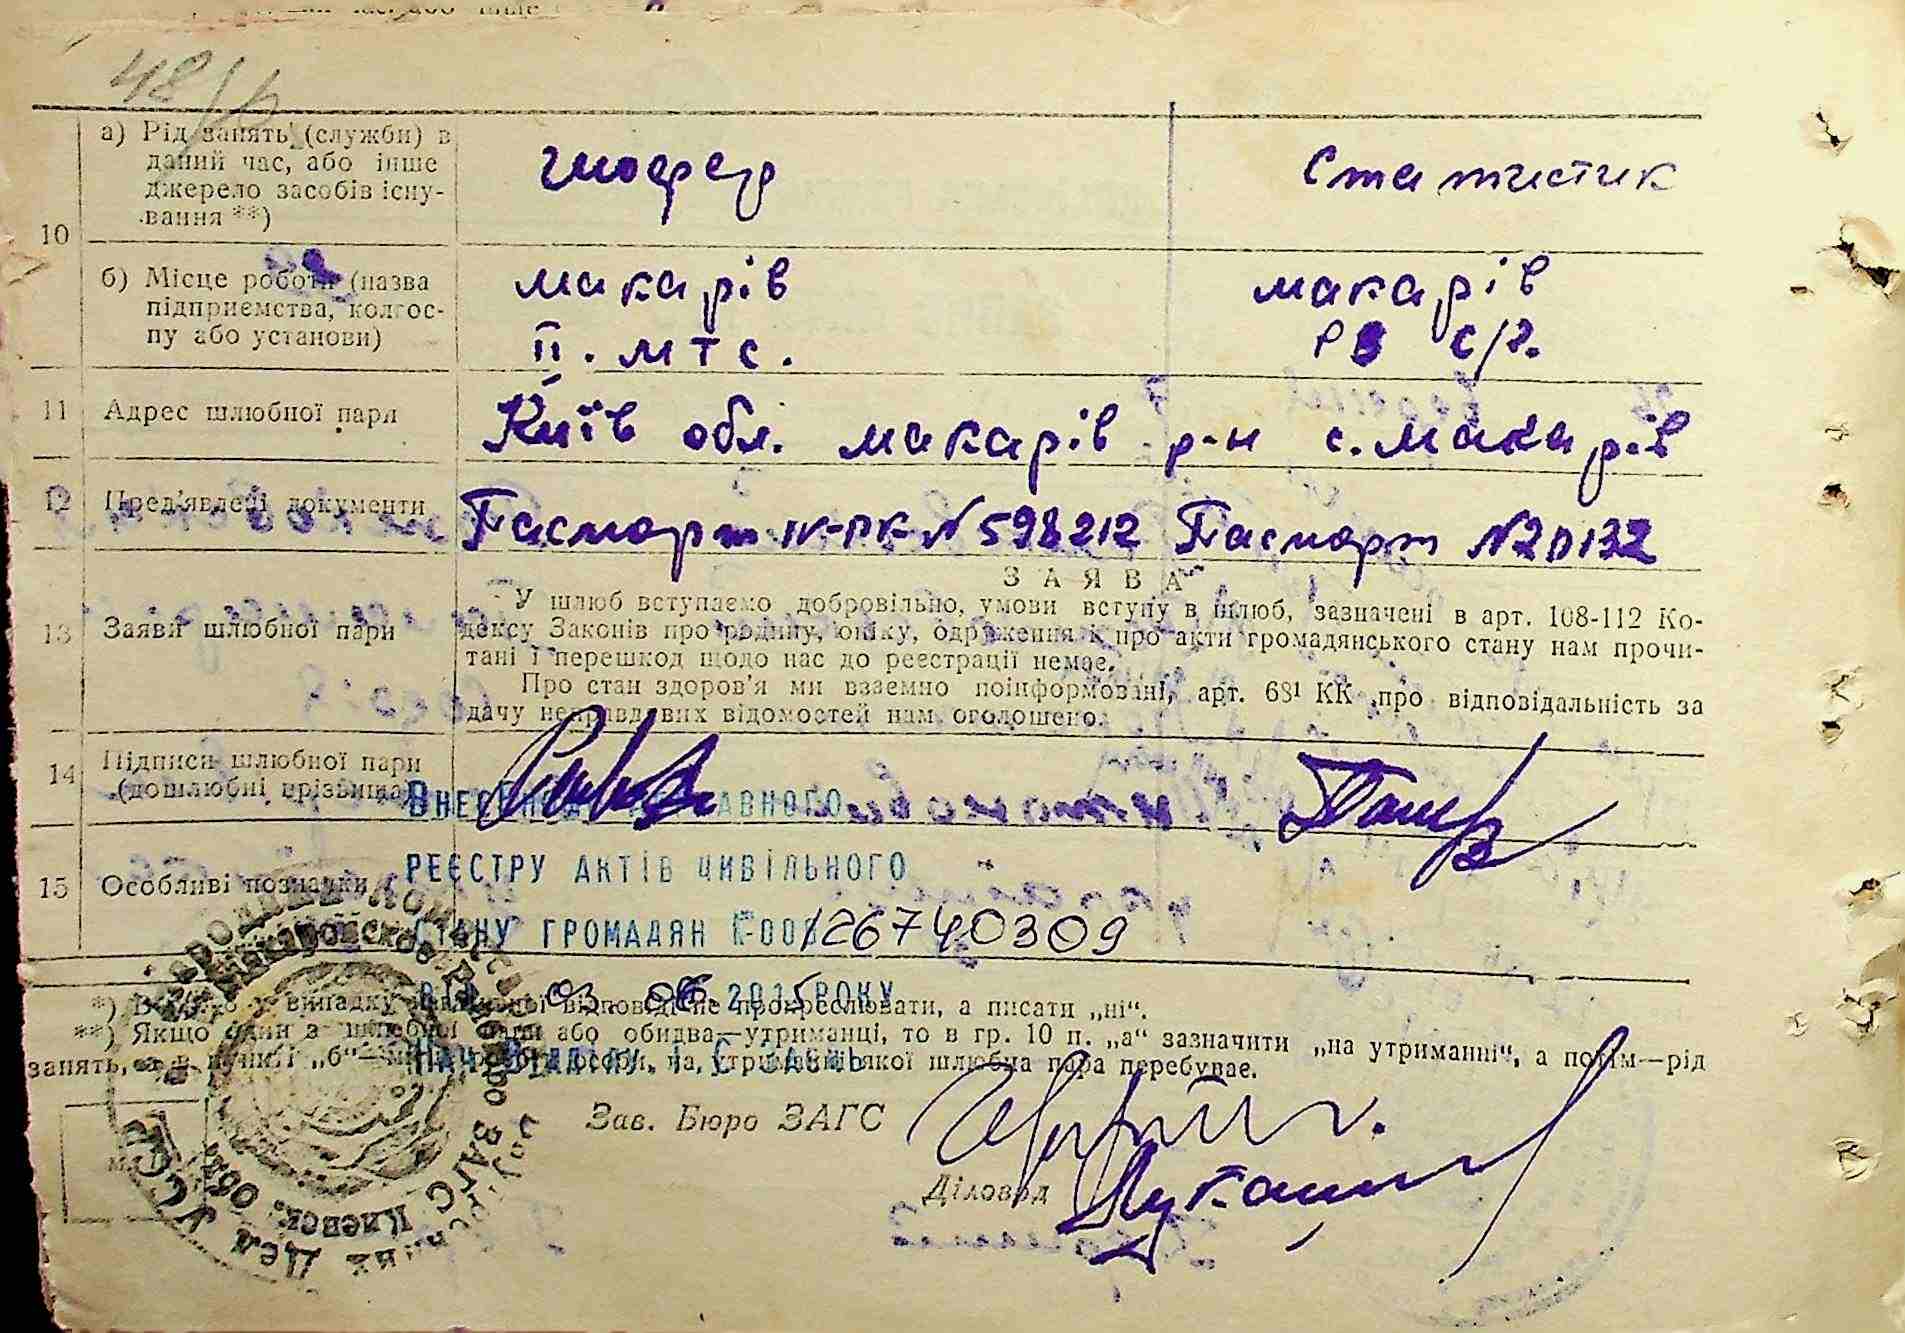 10
а) Рід занять (служби) в
даний час, або інше
джерело засобів існу-
вання **)
шофер
Статистик
б) Місце роботи (назва
підприємства, колгос-
пу або установи)
макарів
II. МТС.
макарів
РВ С/Г.
11 Адрес шлюбної пари
Київ обл. макарів р-н с. макарів
12 Пред'явлені документи
Паспорт IV-РК № 598212 Паспорт №
ЗАЯВА
13 Заяви шлюбної пари
У шлюб вступаємо добровільно, умови вступу в шлюб, зазначені в арт. 108-112 Ко-
дексу Законів про родину, опіку, одруження й про акти громадянського стану нам прочи-
тані і перешкод щодо нас до реєстрації немає.
Про стан здоров'я ми взаємно поінформовані, арт. 68¹ КК про відповідальність за
дачу неправдивих відомостей нам оголошено.
14 Підписи шлюбної пари
(дошлюбні прізвища)
Внесено до Державного
реєстру актів цивільного
стану громадян 126740309
03 2015 року
15 Особливі позначки
*) у випадку відповіді не прокреслювати, а писати „ні“.
**) Якщо один з шлюбної пари або обидва—утриманці, то в гр. 10 п. „а“ зазначити „на утриманні“, а потім—рід
занять, а в пункті „б“— особи, на утриманні якої шлюбна пара перебуває.
Зав. Бюро ЗАГС
Діловод